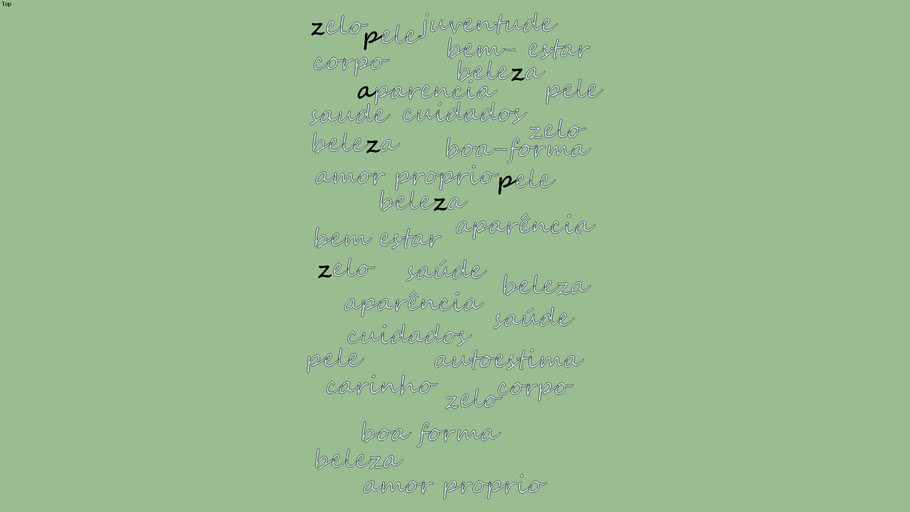 Top
zelo pele juventude
bem- estar
corpo
beleza
aparencia pele
saude cuidados
zelo
beleza boa-forma
amor proprio pele
beleza
aparência
bem estar
zelo saúde
beleza
aparência
saúde
cuidados
pele autoestima
carinho zelo corpo
boa forma
beleza
amor proprio